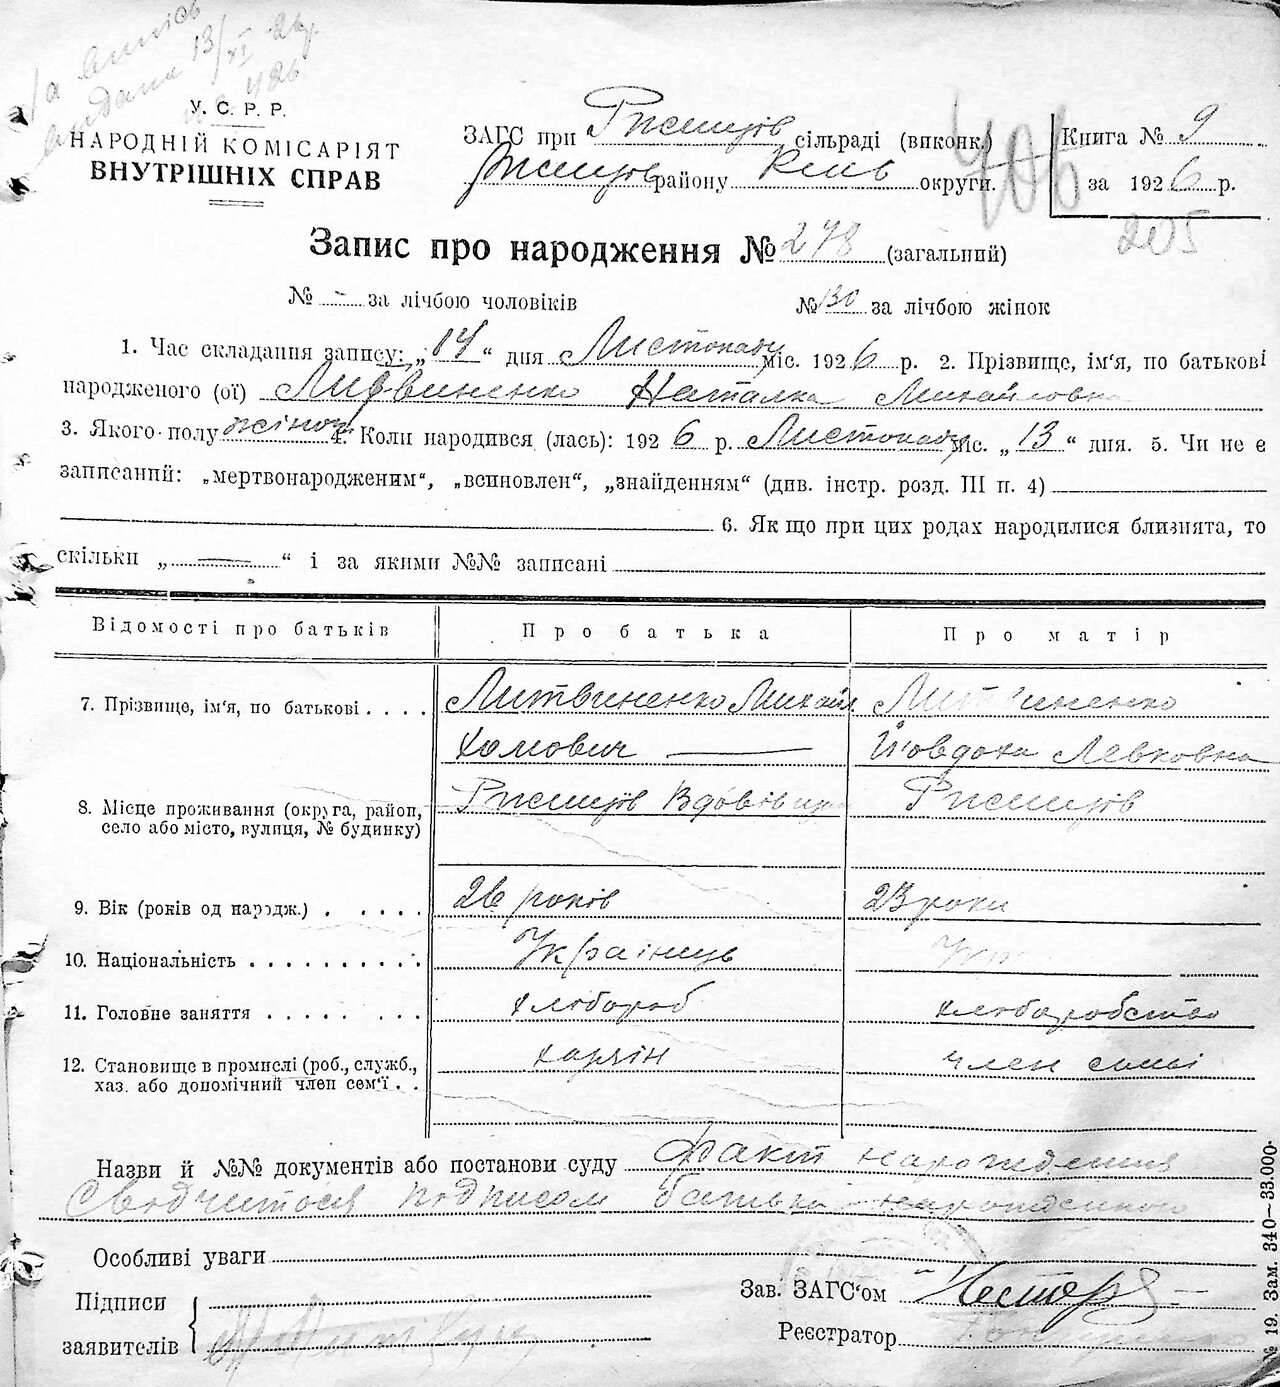 видана 13/XI 26 р.
У. С. Р. Р.
НАРОДНІЙ КОМІСАРІЯТ
ВНУТРІШНІХ СПРАВ
ЗАГС при Ржищів сільраді (виконк.)
Ржищів району Київ округи.
406
Книга № 9
за 1926 р.
205
Запис про народження № 278 (загальний)
№ - за лічбою чоловіків № 130 за лічбою жінок
1. Час складання запису: „14“ дня Листопаду міс. 1926 р. 2. Прізвище, ім'я, по батькові
народженого (ої) Литвиненко Наталка Михайловна
3. Якого полу жіноч 4. Коли народився (лась): 1926 р. Листопаду міс. „13“ дня. 5. Чи не є
записаний: „мертвонародженим“, „всиновлен“, „знайденням“ (див. інстр. розд. III п. 4)
6. Якщо при цих родах народилися близнята, то
скільки „ — “ і за якими №№ записані
Відомості про батьків Про батька Про матір
7. Прізвище, ім'я, по батькові . . . . Литвиненко Михайл Литвиненко
Хомович — Йовдоха Левковна
8. Місце проживання (округа, район, Ржищів Ржищів
село або місто, вулиця, № будинку)
9. Вік (років од народж.) . . . . . 26 років 23 роки
10. Національність . . . . . . . . . . Українець Укр
11. Головне заняття . . . . . . . . хлібороб хліборобство
12. Становище в промислі (роб., служб., хазяїн член сімї
хаз. або допомічний член сем'ї . .
Назви й №№ документів або постанови суду факт нарождения
Сводчитося подписом батька нарожденного
Особливі уваги
Підписи
заявителів
Зав. ЗАГС'ом
Реєстратор
№ 19. Зам. 340—33.000.